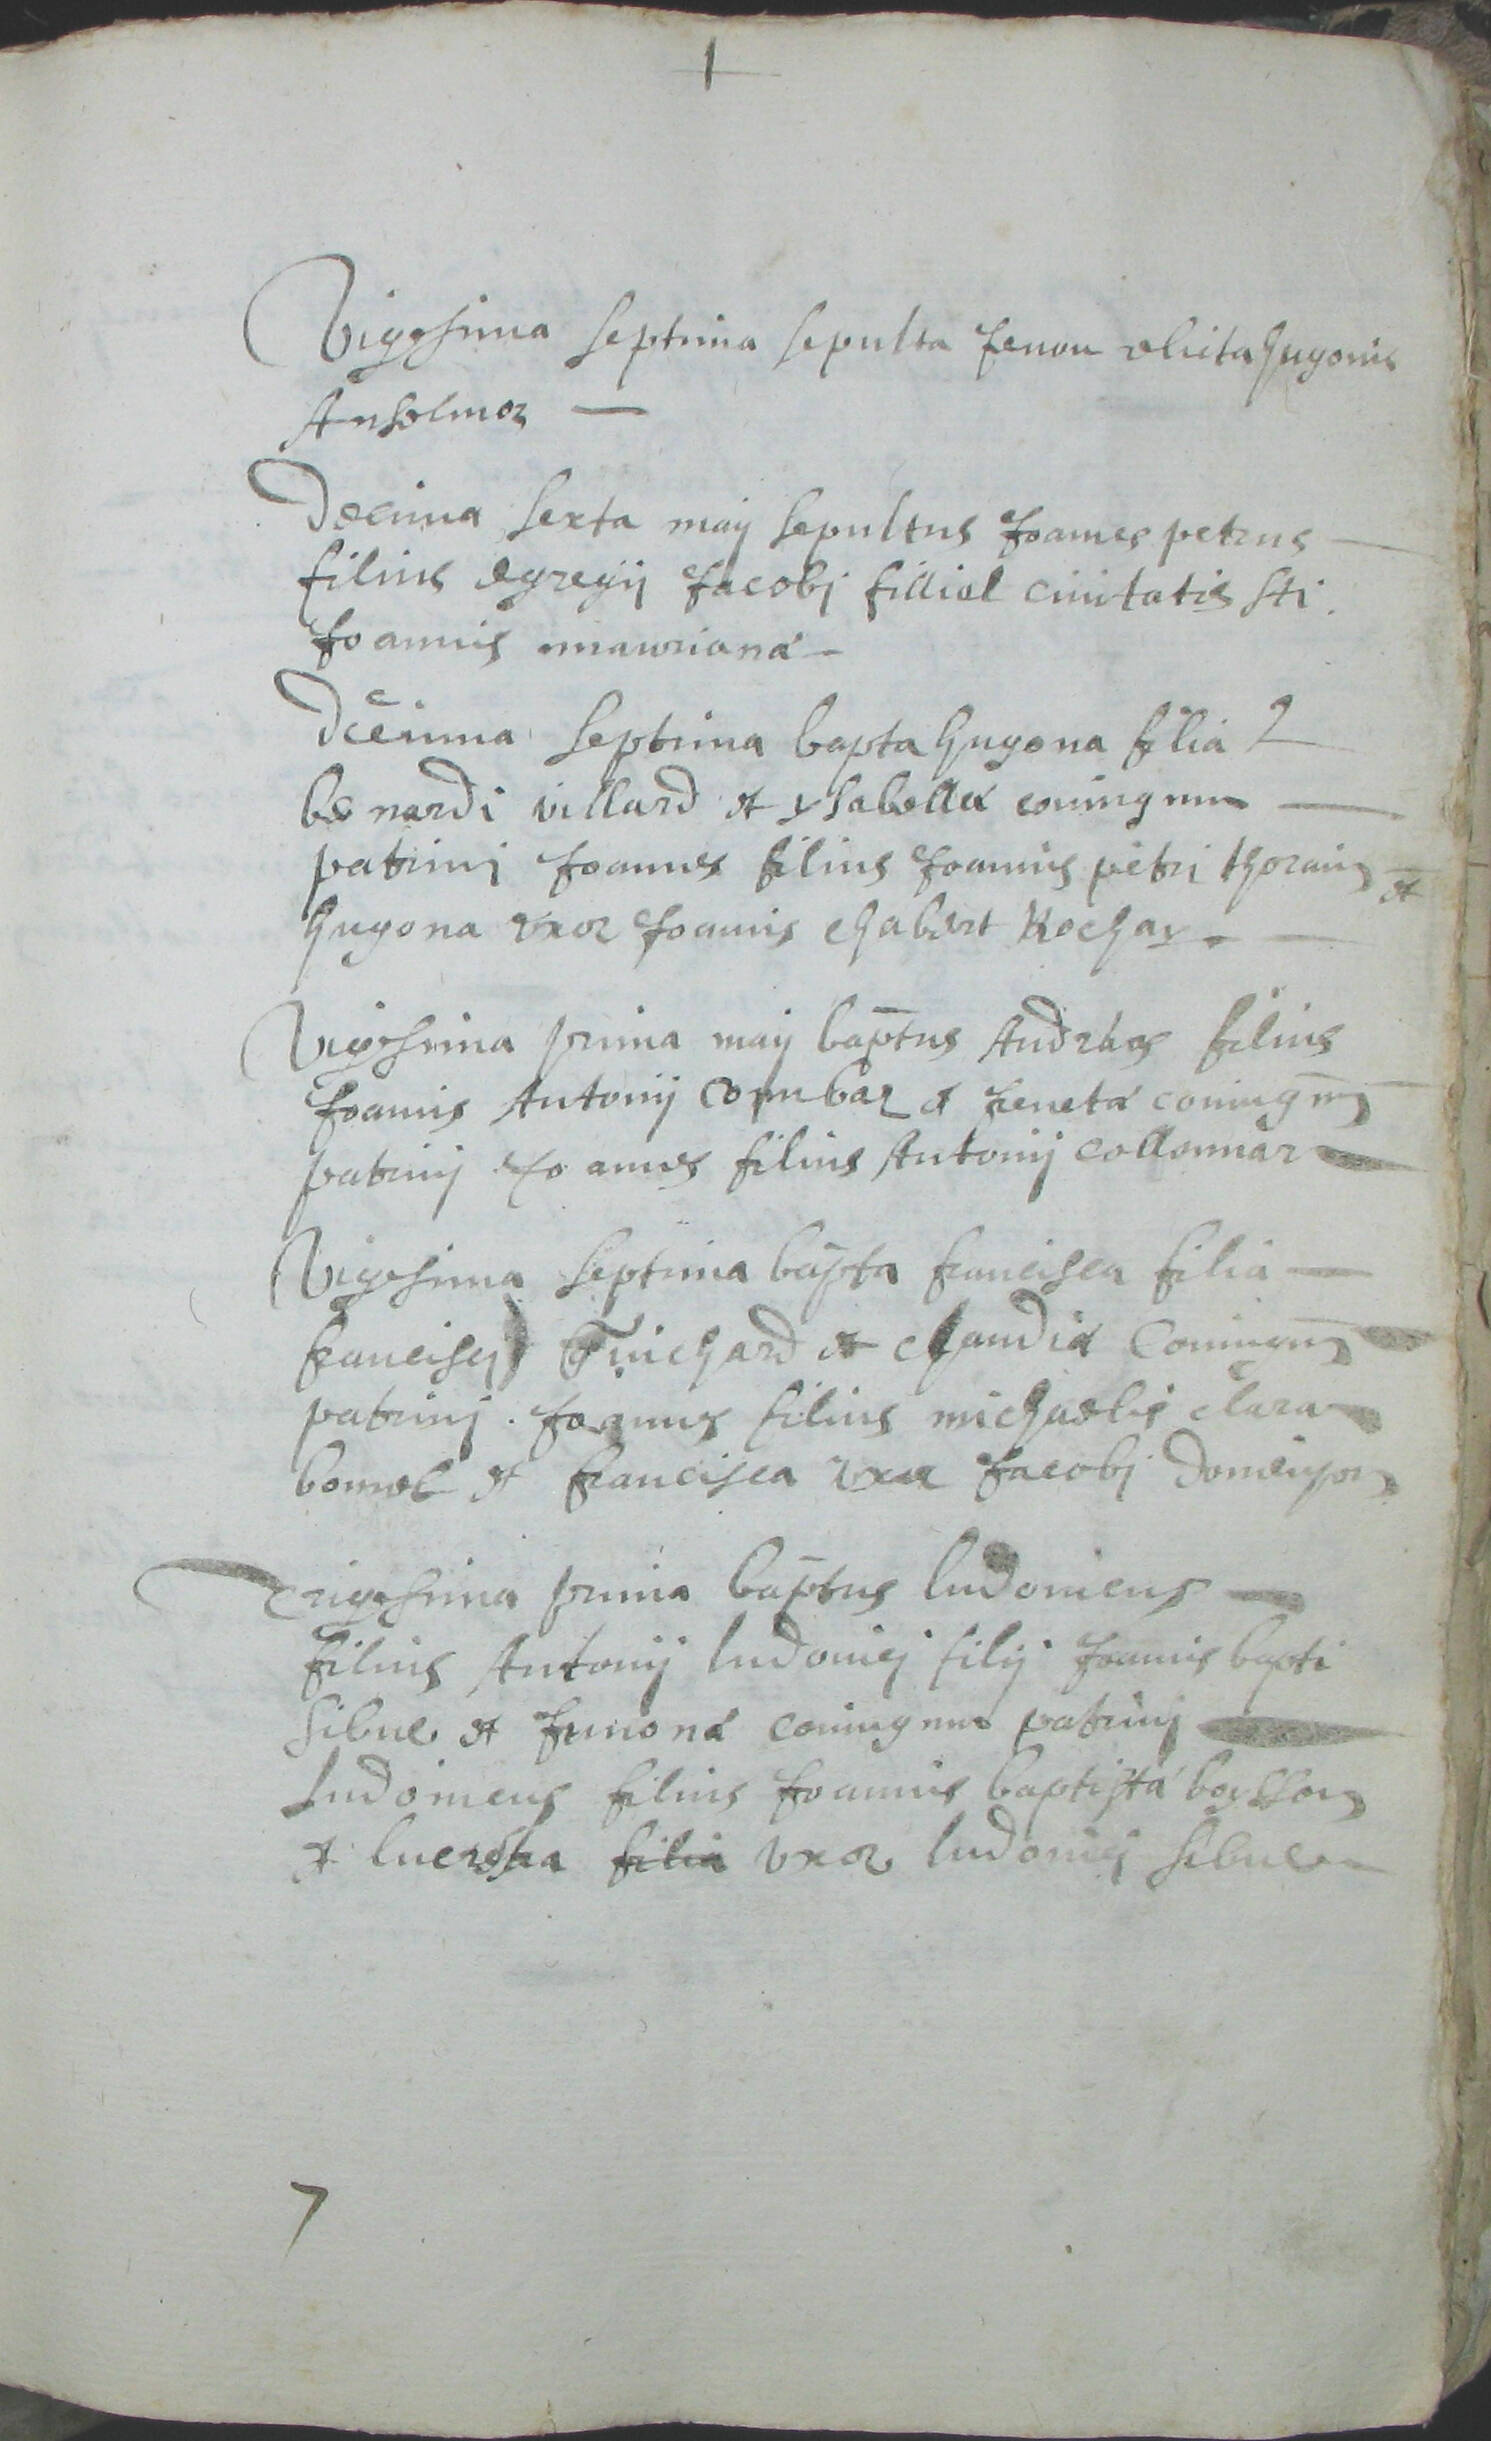 Vigesima septima sepulta Jenon relicta hugonis
Anselmoz
Decima sexta maij sepultus Joannes petrus
filius egregij Jacobj filliol civitatis Sti.
Joannis mauriana
Decima septima bapta hugona filia
bernardi villard et ysabella coniugum
patrinj Joannes filius Joannis petri thorain et
hugona uxor Joannis chabert Rochax
Vigesima prima maij baptus Andreas filius
Joannis Antonij Combaz et Jeneta coniugum
patrinj Joannes filius Antonij collonnaz
Vigesima septima bapta francisca filia
francisci Truchard et claudia Coniugum
patrinj. Joannes filius michaelis clara
bonnel et francisca uxor Jacobj
Trigesima prima baptus ludovicus
filius Antonij ludovicj filij Joannis bapti
Sibue et Junona coniugum patrinj
ludovicus filius Joannis baptista boysson
et lucretia filia uxor ludovicj sibue
7